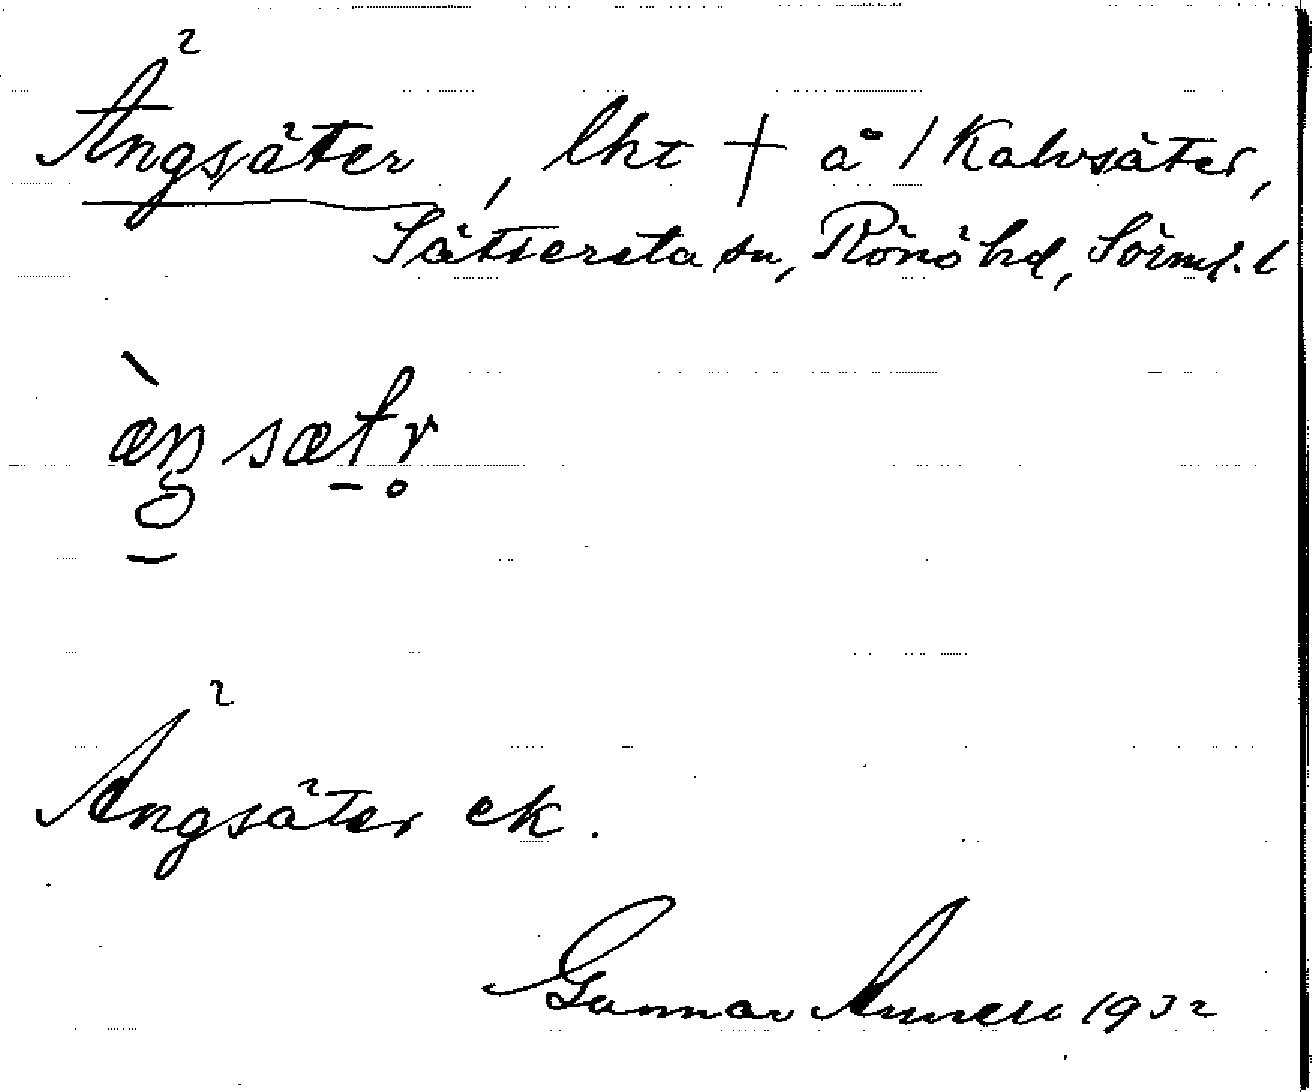 Ängsäter, lht † å 1 Kalvsäter,
Sättersta sn, Rönö hd, Sörml. l
æ̀ŋsætr̥
Ängsäter ek.
Gunnar 1932